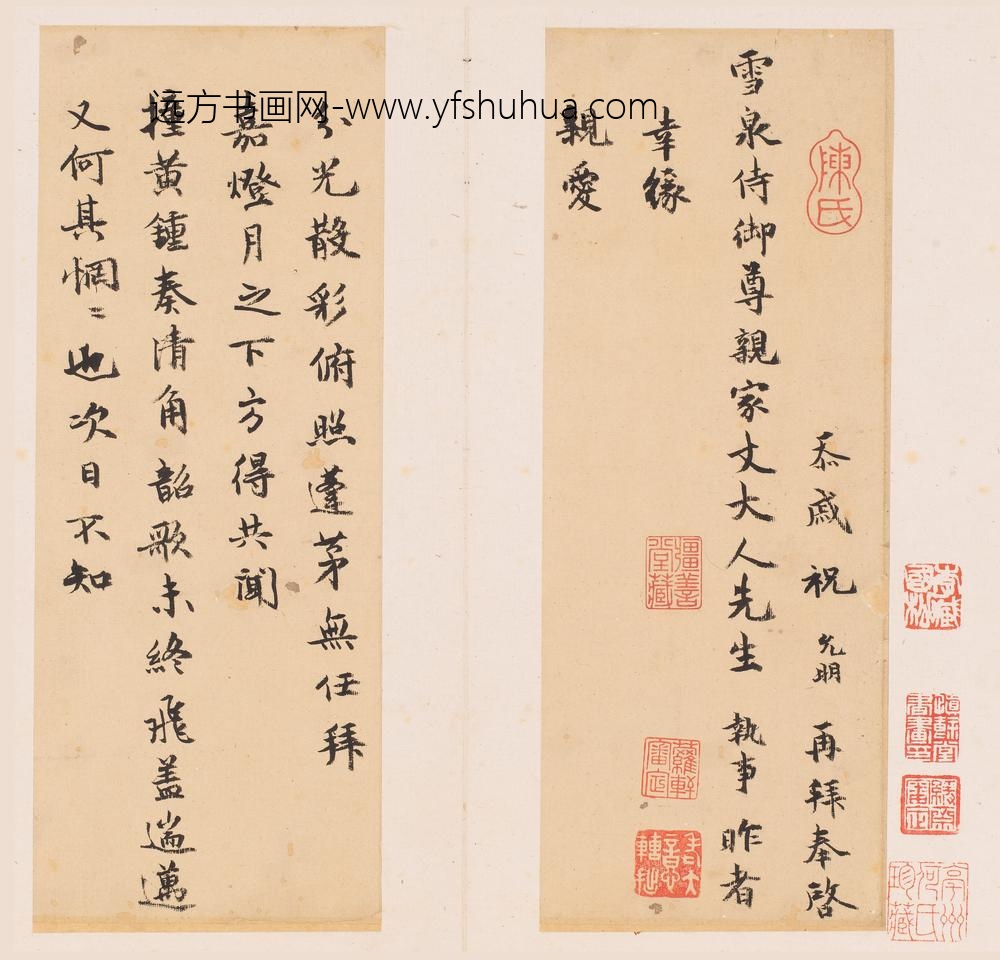 远方书画网-www.yfshuhua.com
忝戚祝允明再拜奉啓
雪泉侍御尊親家丈大人先生執事昨者
幸緣
親愛
分光散彩俯照蓬茅無任拜
嘉燈月之下方得共聞
撞黃鍾奏清角韶歌未終飛盖遄邁
又何其惘〻也次日不知
陳氏
彊善堂藏
蘿軒審定
亭州何氏珍藏